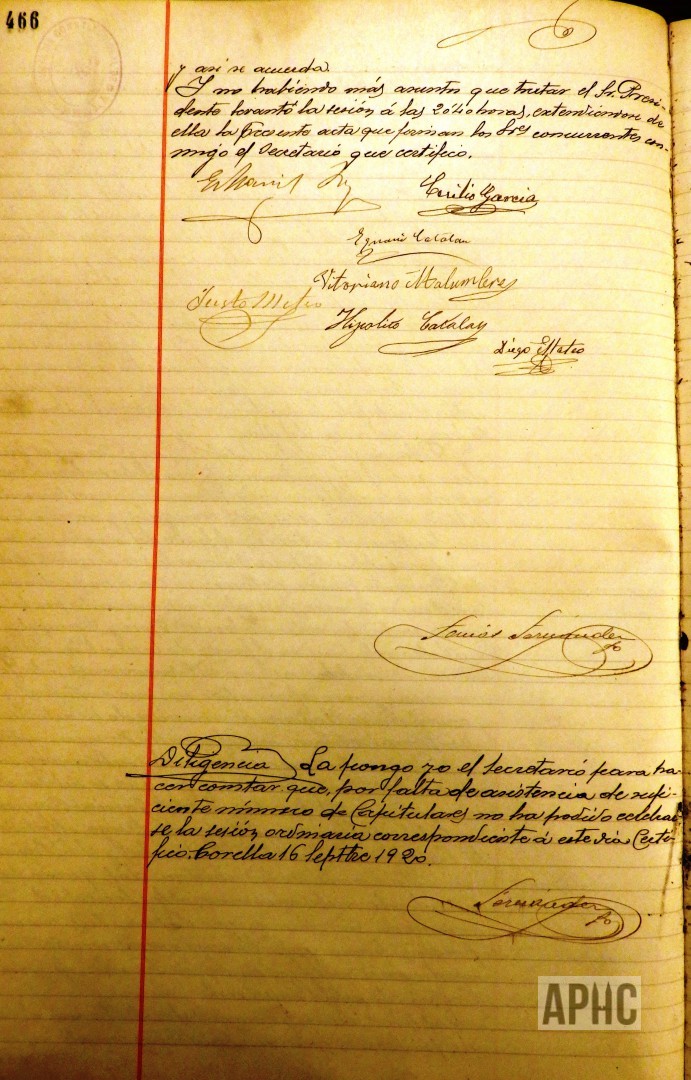 466
y asi se acuerda.
Y no habiendo más asuntos que tratar el Sr. Presi-
dente levantó la sesión á las 20'40 horas, extendiendose de
ella la presente acta que firman los Sres concurrentes con-
migo el Secretario que certifico.
Cecilio Garcia
Catalan
Vitoriano Malumbres
Justo Mateo
Hipolito Catalan
Diego Mateo
Fernández
Diligencia La pongo yo el secretario para ha-
cer constar que, por falta de asistencia de sufi-
ciente número de Capitulares no ha podido celebrar-
se la sesión ordinaria correspondiente á este día Certi-
fico. Corella 16 Septbre 1920.
Fernández
APHC